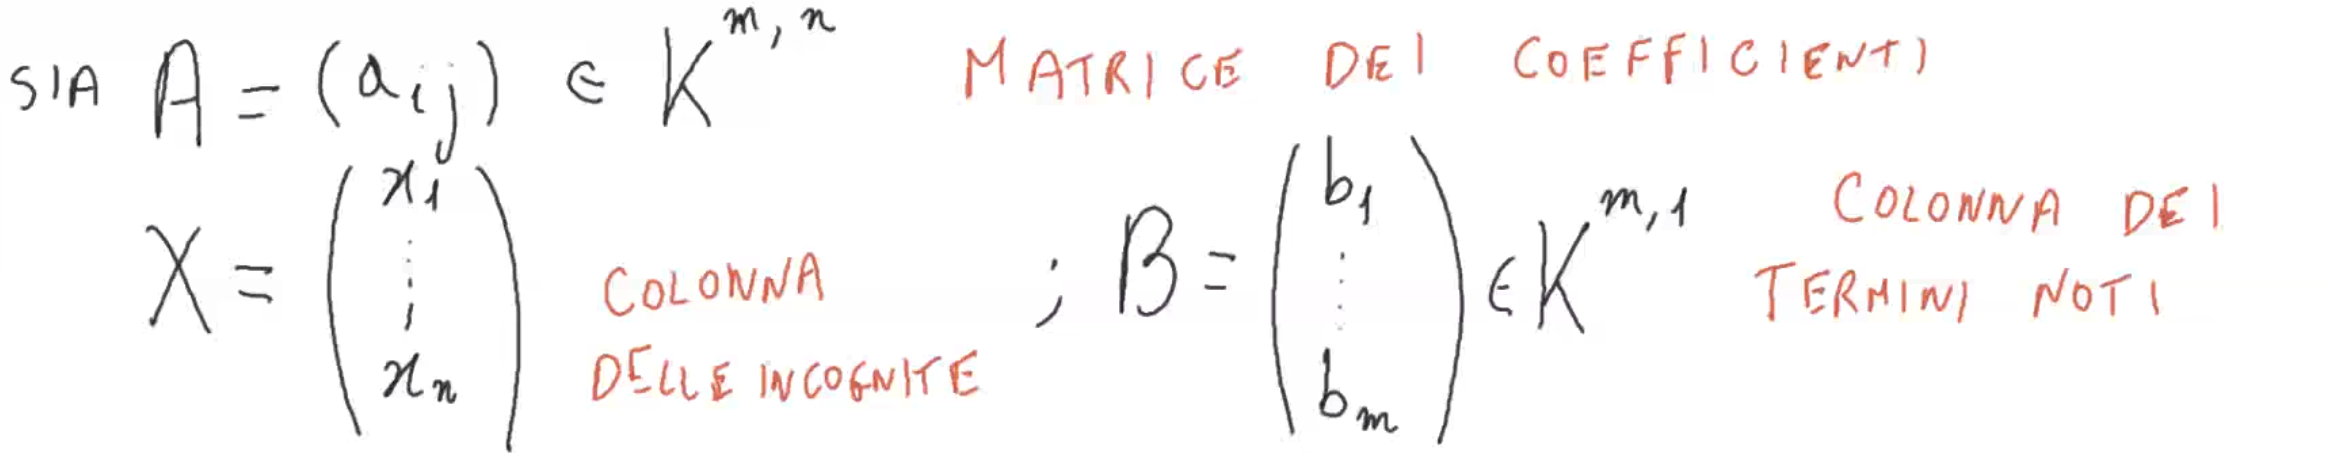 SIA A = (a_{ij}) ∈ K^{m,n} MATRICE DEI COEFFICIENTI
X = (x_1 ⋮ x_n) COLONNA DELLE INCOGNITE ; B = (b_1 ⋮ b_m) ∈ K^{m,1} COLONNA DEI TERMINI NOTI